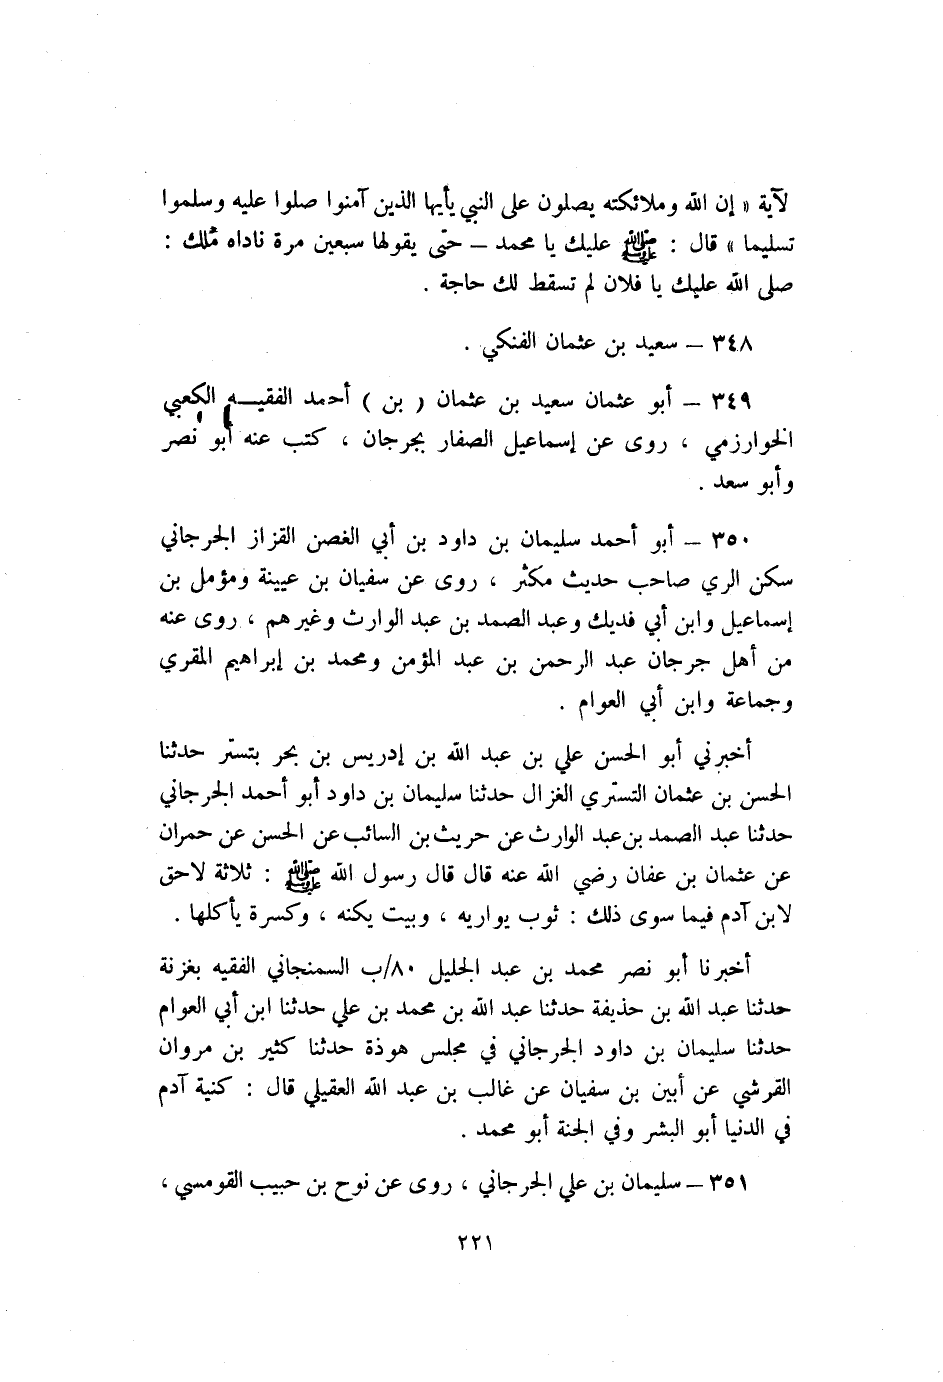 لآية « إن الله وملائكته يصلون على النبي يأيها الذين آمنوا صلوا عليه وسلموا
تسليما » قال : ﷺ عليك يا محمد – حتى يقولها سبعين مرة ناداه مُلك :
صلى الله عليك يا فلان لم تسقط لك حاجة .
٣٤٨ – سعيد بن عثمان الفنكي .
٣٤٩ – أبو عثمان سعيد بن عثمان ( بن ) أحمد الفقيــه الكعبي
الخوارزمي ، روى عن إسماعيل الصفار بجرجان ، كتب عنه أبو نصر
وأبو سعد .
٣٥٠ – أبو أحمد سليمان بن داود بن أبي الغصن القزاز الجرجاني
سكن الري صاحب حديث مكثر ، روى عن سفيان بن عيينة ومؤمل بن
إسماعيل وابن أبي فديك وعبد الصمد بن عبد الوارث وغيرهم ، روى عنه
من أهل جرجان عبد الرحمن بن عبد المؤمن ومحمد بن إبراهيم المقري
وجماعة وابن أبي العوام .
أخبرني أبو الحسن علي بن عبد الله بن إدريس بن بحر بتستر حدثنا
الحسن بن عثمان التستري الغزال حدثنا سليمان بن داود أبو أحمد الجرجاني
حدثنا عبد الصمد بن عبد الوارث عن حريث بن السائب عن الحسن عن حمران
عن عثمان بن عفان رضي الله عنه قال قال رسول الله ﷺ : ثلاثة لاحق
لابن آدم فيما سوى ذلك : ثوب يواريه ، وبيت يكنه ، وكسرة يأكلها .
أخبرنا أبو نصر محمد بن عبد الجليل ٨٠/ب السمنجاني الفقيه بغزنة
حدثنا عبد الله بن حذيفة حدثنا عبد الله بن محمد بن علي حدثنا ابن أبي العوام
حدثنا سليمان بن داود الجرجاني في مجلس هوذة حدثنا كثير بن مروان
القرشي عن أبين بن سفيان عن غالب بن عبد الله العقيلي قال : كنية آدم
في الدنيا أبو البشر وفي الجنة أبو محمد .
٣٥١ – سليمان بن علي الجرجاني ، روى عن نوح بن حبيب القومسي ،
٢٢١